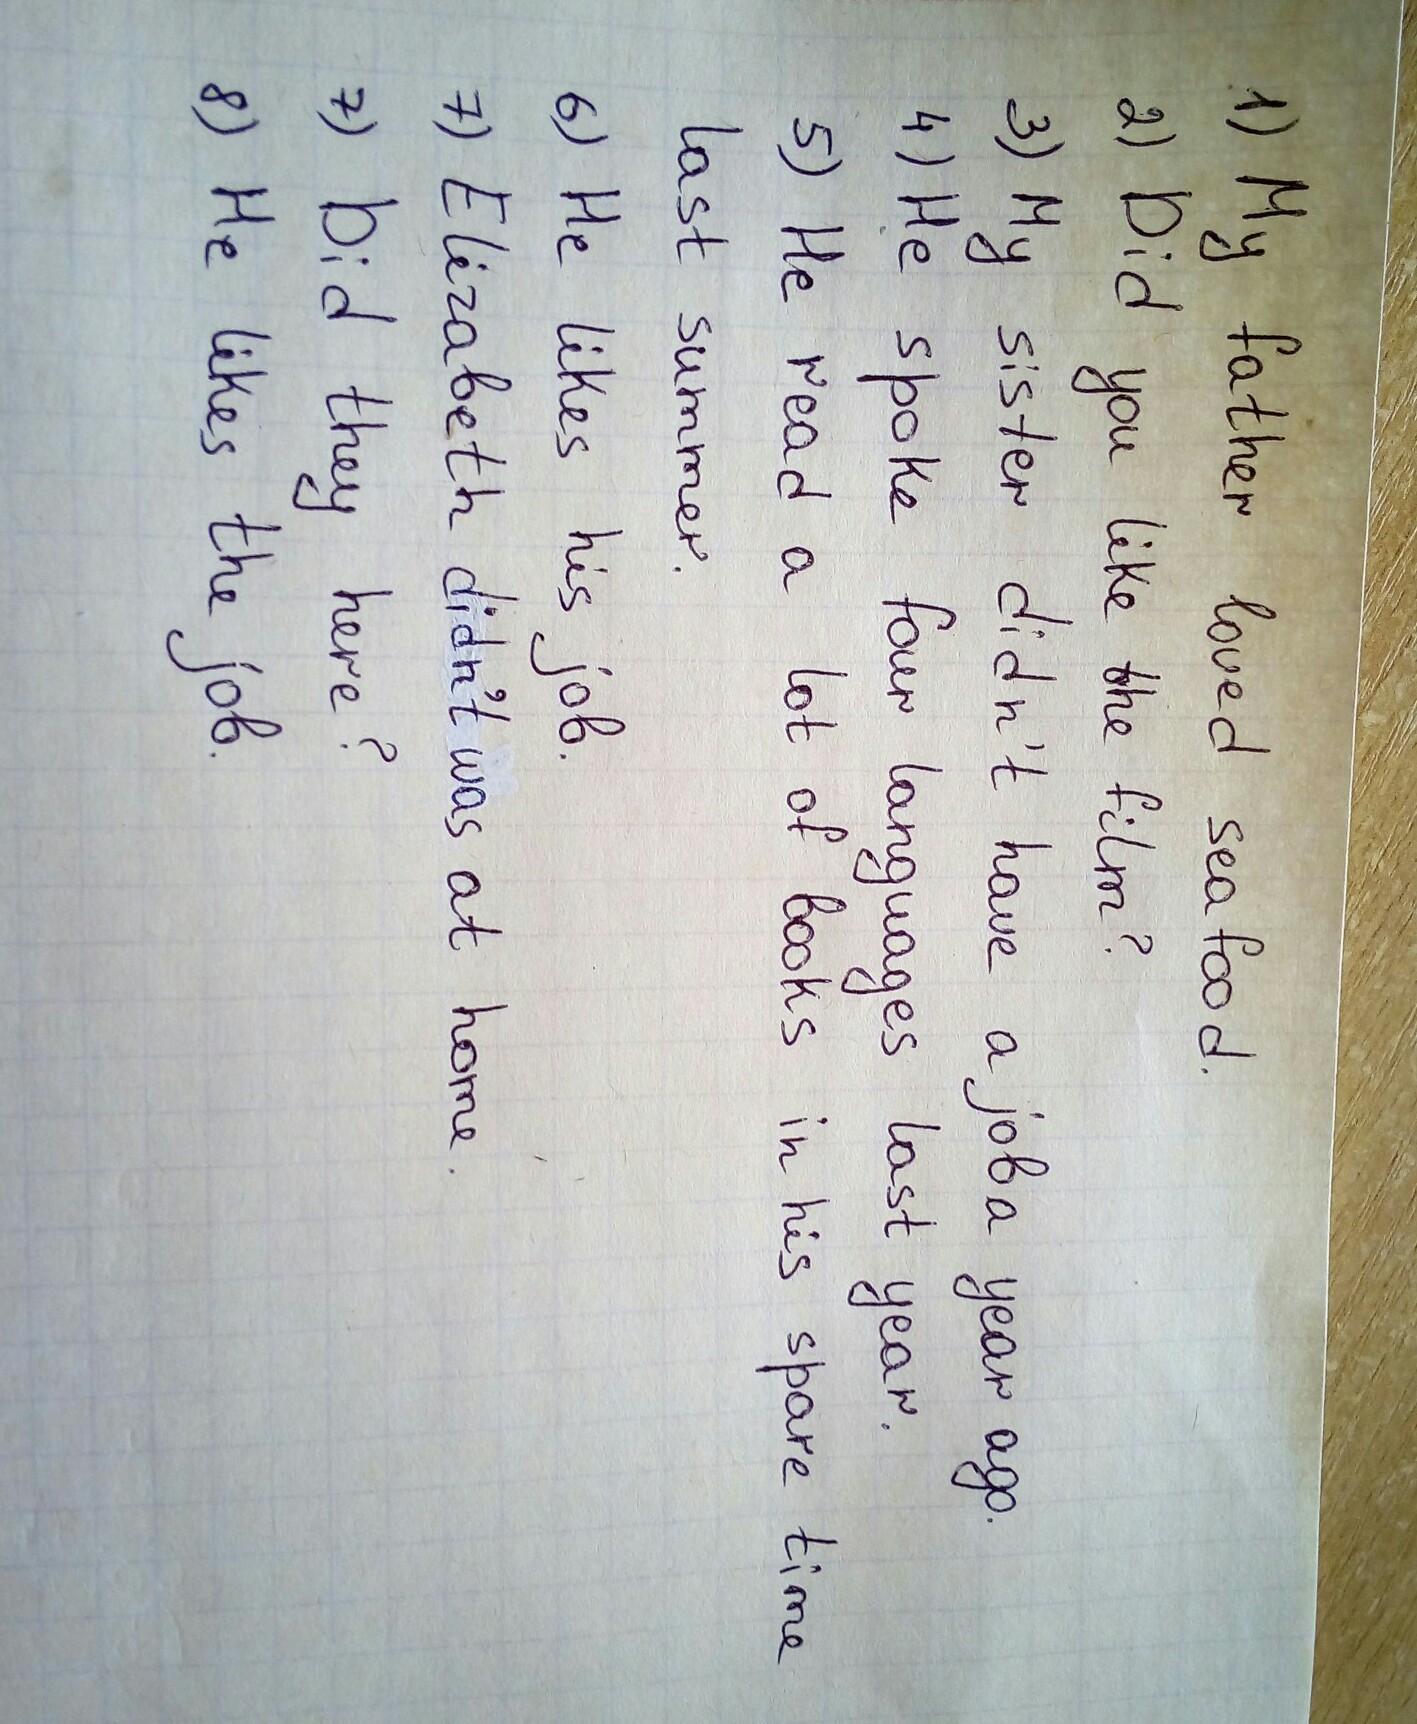 1) My father loved seafood.
2) Did you like the film?
3) My sister didn't have a job a year ago.
4) He spoke four languages last year.
5) He read a lot of books in his spare time
last summer.
6) He likes his job.
7) Elizabeth didn't was at home.
7) Did they here?
8) He likes the job.